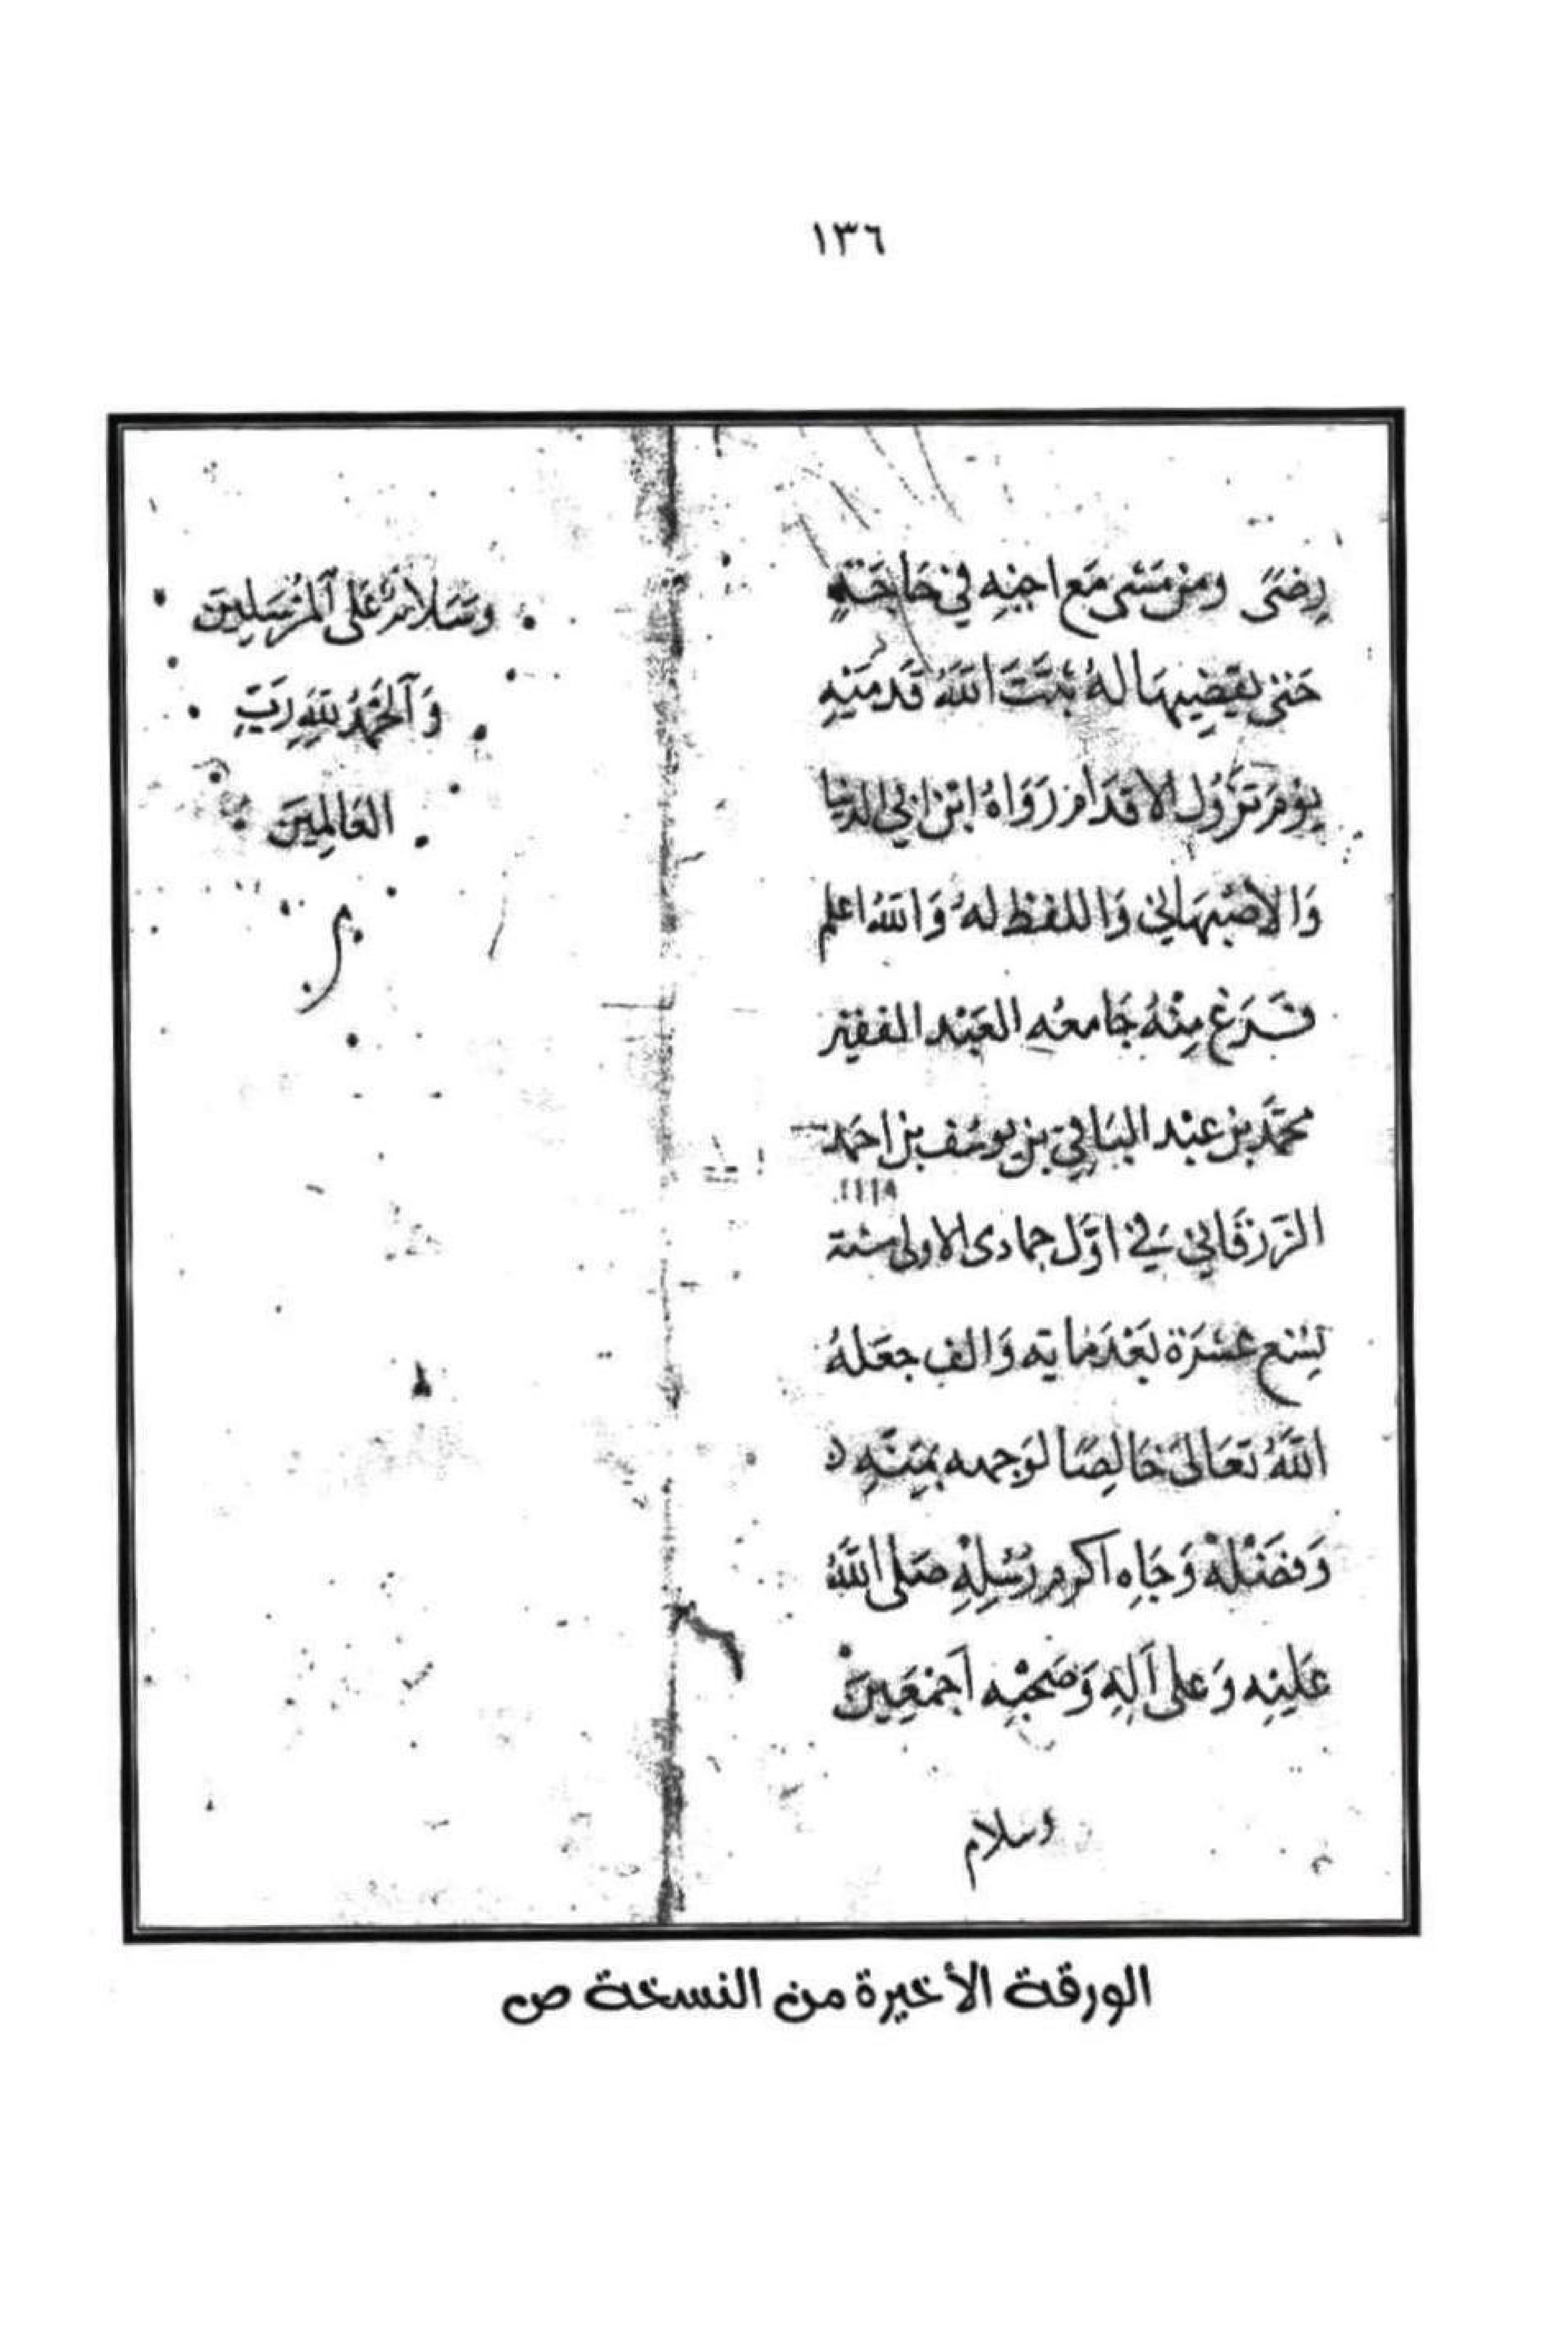 ١٣٦
رِضَىً ومن مَشى مَع اخِيْهِ في حَاجَتهٍ
حَتى يَقضِيهَا لهُ ثَبَّتَ اللّهُ قَدمَيْهِ
يوْمَ تَزُوُل الاقدَام رَوَاهُ ابْن ابي الدنيا
وَالاصْبهَاني وَاللفظ لهُ وَاللّهُ اعلم
فَرَغ مِنْهُ جَامعُه العَبْد الفقير
محمَّد بن عبْد البَاقي بن يوسُف بن احمَد
الزرقَاني في اوَّل جمادى الاولى سنة
تِسْع عشرَة بَعْدَ مايه وَالف جعَلهُ
اللّهُ تعَالىَ خَالِصًا لوَجهه بمَنّهِ
وَفضْلهْ وَجَاهِ اكرم رُسُلِهْ صَلى اللّهُ
عَليْهِ وَعلى آلِهِ وَصَحْبِه اَجْمَعِينَْ
وسلام
وَسَلامٌ عَلى اَلمُرْسَلِينَ
وَاَلحَمْدُ للّهِ رَبِّ
العَالمِينَ
م
الورقة الأخيرة من النسخة ص